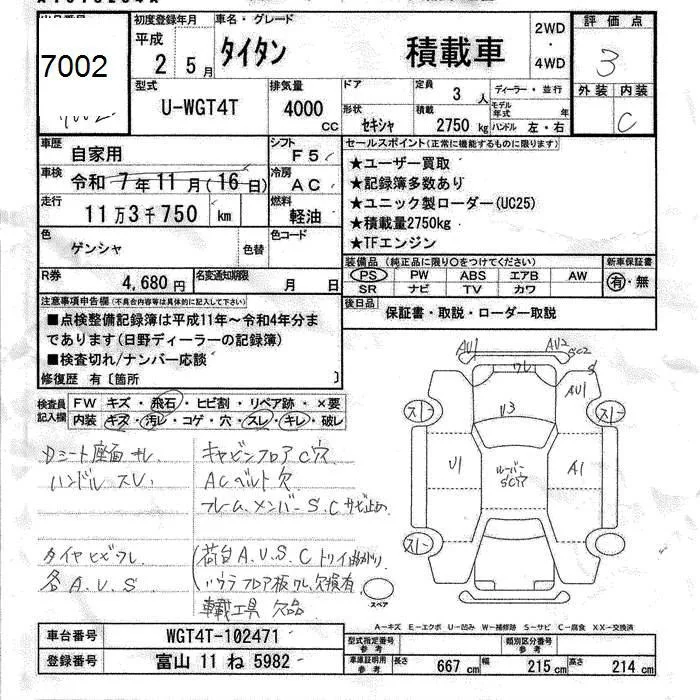 7002
初度登録年月
平成
2 5月
車名・グレード
タイタン 積載車
2WD
・
4WD
評価点
3
外装 内装
C
型式
U-WGT4T
排気量
4000
cc
ドア
定員
3 人
ディーラー・並行
形状
セキシャ
積載
2750 kg
モデル年式 年
ハンドル 左・右
車歴
自家用
シフト
F5
車検
令和 7年11月(16日)
冷房
AC
走行
11万3千750 km
燃料
軽油
色
ゲンシャ
色替
色コード
R券
4,680円
名変通知期限
月 日
セールスポイント(正常に機能するものに限ります)
★ユーザー買取
★記録簿多数あり
★ユニック製ローダー(UC25)
★積載量2750kg
★TFエンジン
装備品(純正品に限り○をつけてください)
新車保証書
PS PW ABS エアB AW
SR ナビ TV カワ
有・無
後日品
保証書・取説・ローダー取説
注意事項申告欄(不具合内容等は具体的に記入して下さい)
■点検整備記録簿は平成11年～令和4年分ま
であります(日野ディーラーの記録簿)
■検査切れ/ナンバー応談
修復歴 有〔箇所 〕
検査員
記入欄
FW キズ・飛石・ヒビ割・リペア跡・×要
内装 キズ・汚レ・コゲ・穴・スレ・キレ・破レ
ハンドル スレ
キャビンフロアC穴
ACベルト欠
フレーム、メンバーS.Cサビ止め
タイヤヒビワレ
各A.U.S
荷台A.U.S.C
車載工具 欠品
AU1
AU2
SC2
ワレ
S
AU1
U3
U1
A1
ルーバー
SC穴
スペア
A－キズ E－エクボ U－凹み W－補修跡 S－サビ C－腐食 XX－交換済
車台番号
WGT4T-102471
登録番号
富山 11 ね 5982
型式指定番号
参考
類別区分番号
参考
車庫証明用
参考
長さ 667 cm 幅 215 cm 高さ 214 cm